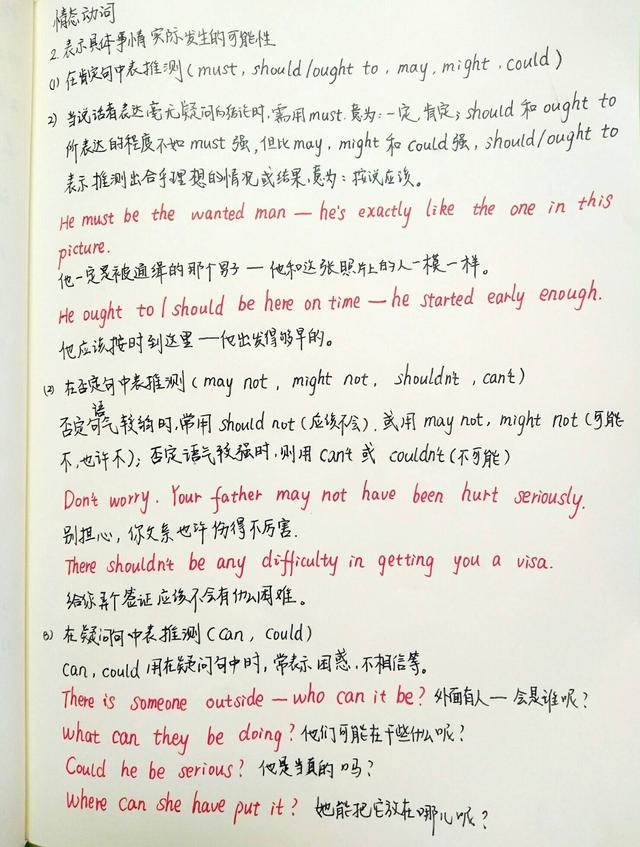 情态动词
2. 表示具体事情实际发生的可能性
(1) 在肯定句中表推测 (must, should/ought to, may, might, could)
2) 当说话者表达毫无疑问的结论时,需用must.意为:一定,肯定; should 和 ought to
所表达的程度不如 must 强,但比 may, might 和 could 强, should/ought to
表示推测出合乎理想的情况或结果,意为:按说应该。
He must be the wanted man — he's exactly like the one in this
picture.
他一定是被通缉的那个男子 — 他和这张照片上的人一模一样。
He ought to / should be here on time — he started early enough.
他应该按时到这里 — 他出发得够早的。
(2) 在否定句中表推测 (may not, might not, shouldn't, can't)
否定语气较弱时,常用 should not (应该不会). 或用 may not, might not (可能
不,也许不); 否定语气较强时,则用 can't 或 couldn't (不可能)
Don't worry. Your father may not have been hurt seriously.
别担心,你父亲也许伤得不厉害.
There shouldn't be any difficulty in getting you a visa.
给你弄个签证应该不会有什么困难。
3) 在疑问句中表推测 (can, could)
can, could 用在疑问句中时,常表示困惑,不相信等。
There is someone outside — who can it be? 外面有人 — 会是谁呢?
What can they be doing? 他们可能在干些什么呢?
Could he be serious? 他是当真的吗?
Where can she have put it? 她能把它放在哪儿呢?